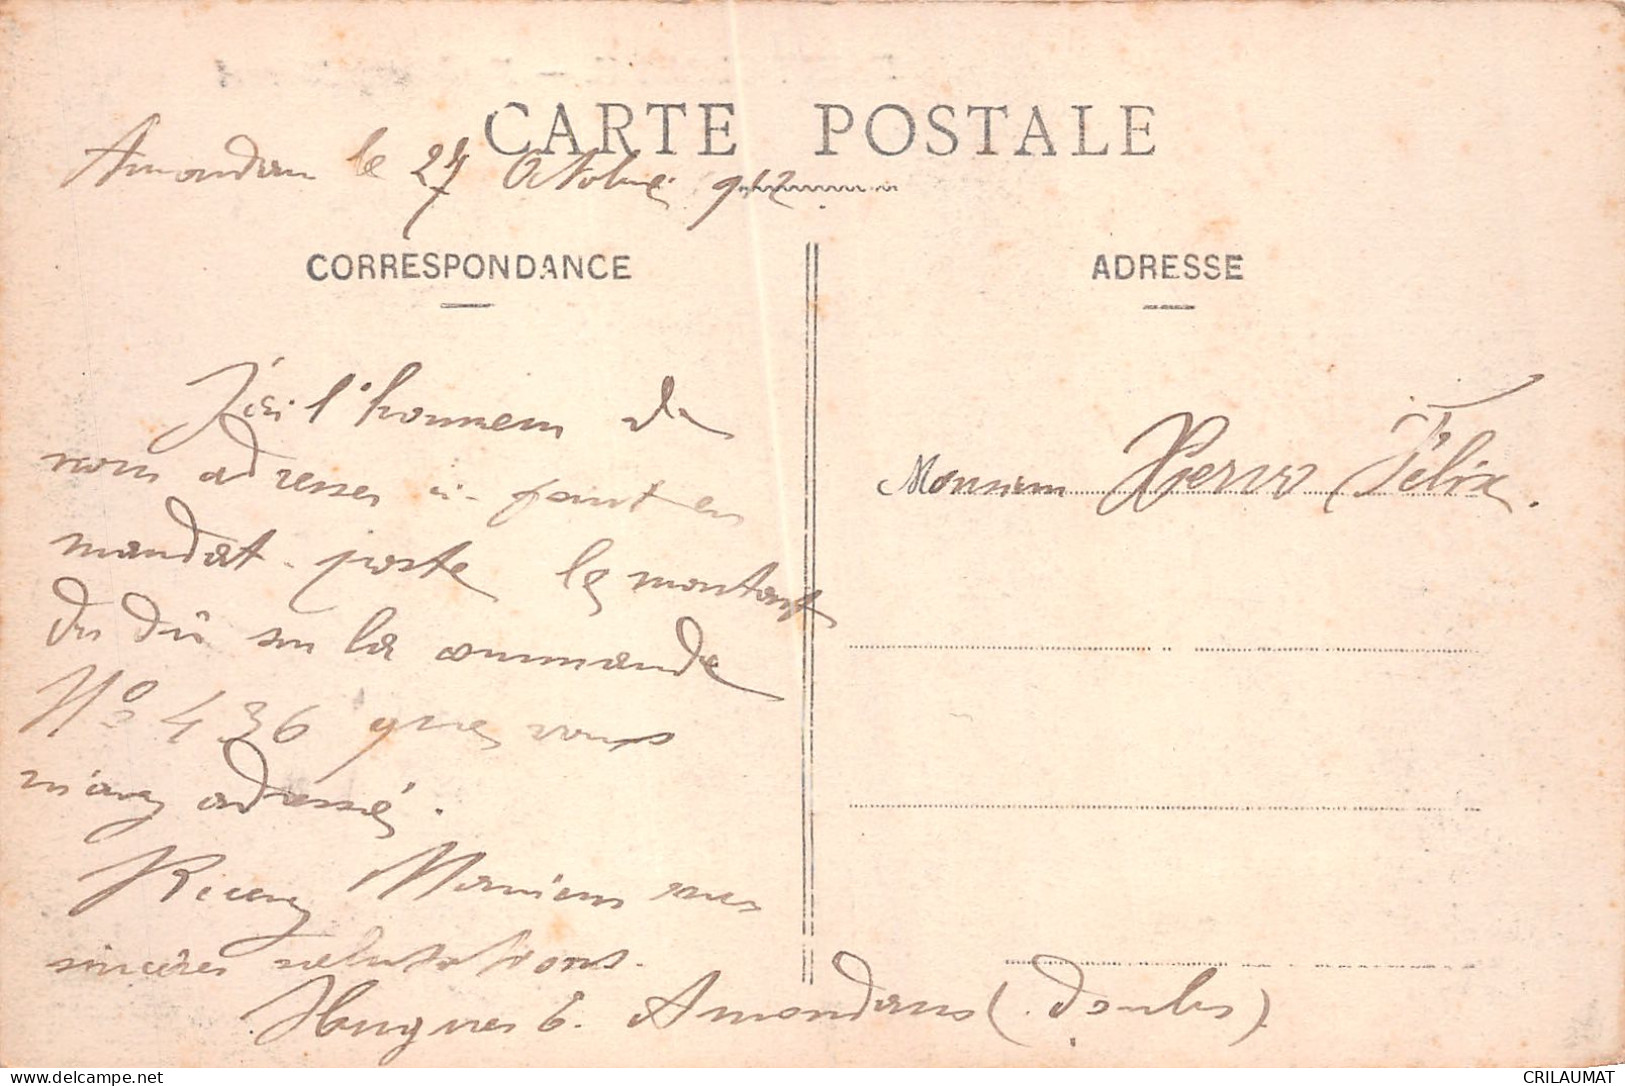 CARTE POSTALE
Amondans le 27 Octobre 912.
CORRESPONDANCE
ADRESSE
J'ai l'honneur de
vous adresser ci-joint en
mandat-poste le montant
du dû sur la commande
No 436 que vous
m'avez adressé.
Recevez Monsieur mes
sincères salutations.
Hugues E. Amondans (Doubs)
Monsieur Félix.
CRILAUMAT